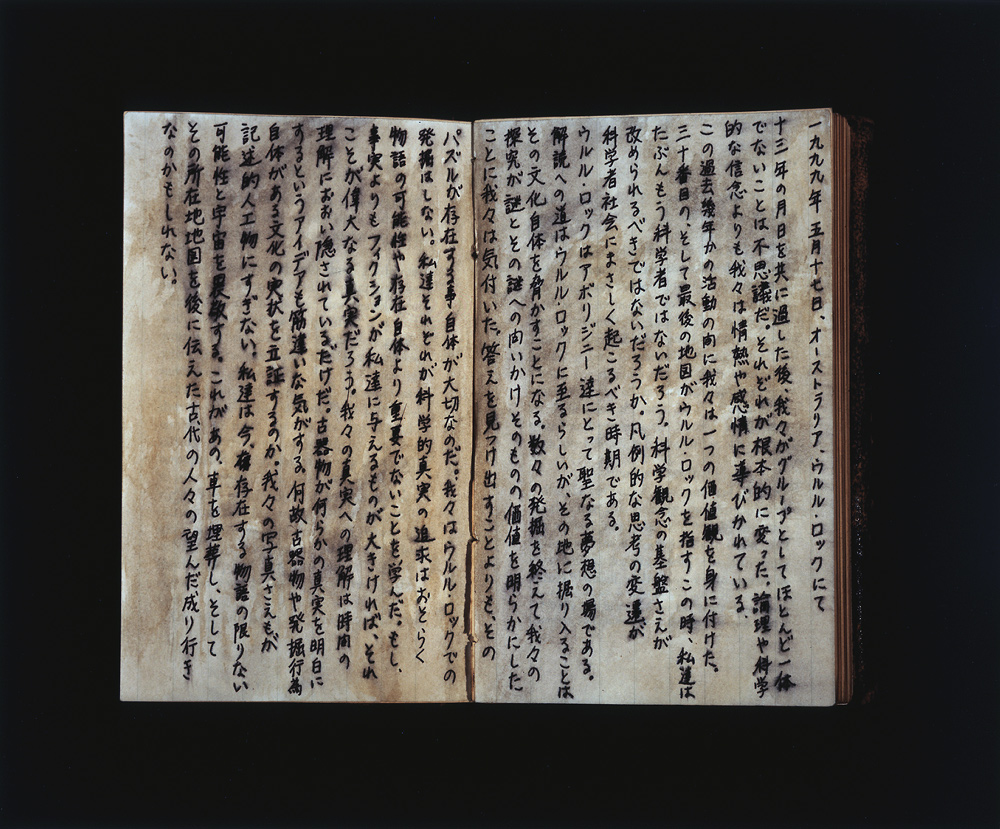 一九九九年 五月十七日、オーストラリア、ウルル・ロックにて
十三年の月日を共に過した後、我々がグループとしてほとんど一体
でないことは不思議だ。それぞれが根本的に変った。論理や科学
的な信念よりも我々は情熱や感情に導びかれている。
この過去幾年かの活動の内に我々は一つの価値観を身に付けた。
三十番目の、そして最後の地図がウルル・ロックを指すこの時、私達は
たぶんもう科学者ではないだろう。科学観念の基盤さえが
改められるべきではないだろうか。凡例的な思考の変遷が
科学者社会にまさしく起こるべき時期である。
ウルル・ロックはアボリジニー達にとって聖なる夢想の場である。
解説への道はウルル・ロックに至るらしいが、その地に掘り入ることは
その文化自体を脅かすことになる。数々の発掘を終えて我々の
探究が謎とその謎への問いかけそのものの価値を明らかにした
ことに我々は気付いた。答えを見つけ出すことよりも、その
パズルが存在する事自体が大切なのだ。我々はウルル・ロックでの
発掘はしない。私達それぞれが科学的真実の追求はおそらく
物語の可能性や存在自体より重要でないことを学んだ。もし、
事実よりもフィクションが私達に与えるものが大きければ、それ
ことが偉大なる真実だろう。我々の真実への理解は時間の
理解におおい隠されている、だけだ。古器物が何らかの真実を明白に
するというアイデアも筋違いな気がする。何故古器物や発掘行為
自体がある文化の実状を立証するのか。我々の写真さえもが
記述的人工物にすぎない。私達は今、存在する物語の限りない
可能性と宇宙を果敢する。これがあの、車を埋葬し、そして
その所在地地図を後に伝えた古代の人々の望んだ成り行き
なのかもしれない。